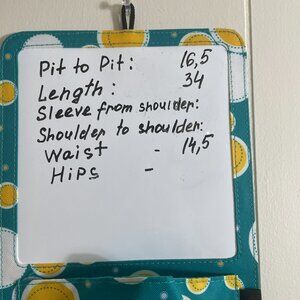 Pit to Pit: 16,5
Length: 34
Sleeve from shoulder:
Shoulder to shoulder:
Waist - 14,5
Hips -